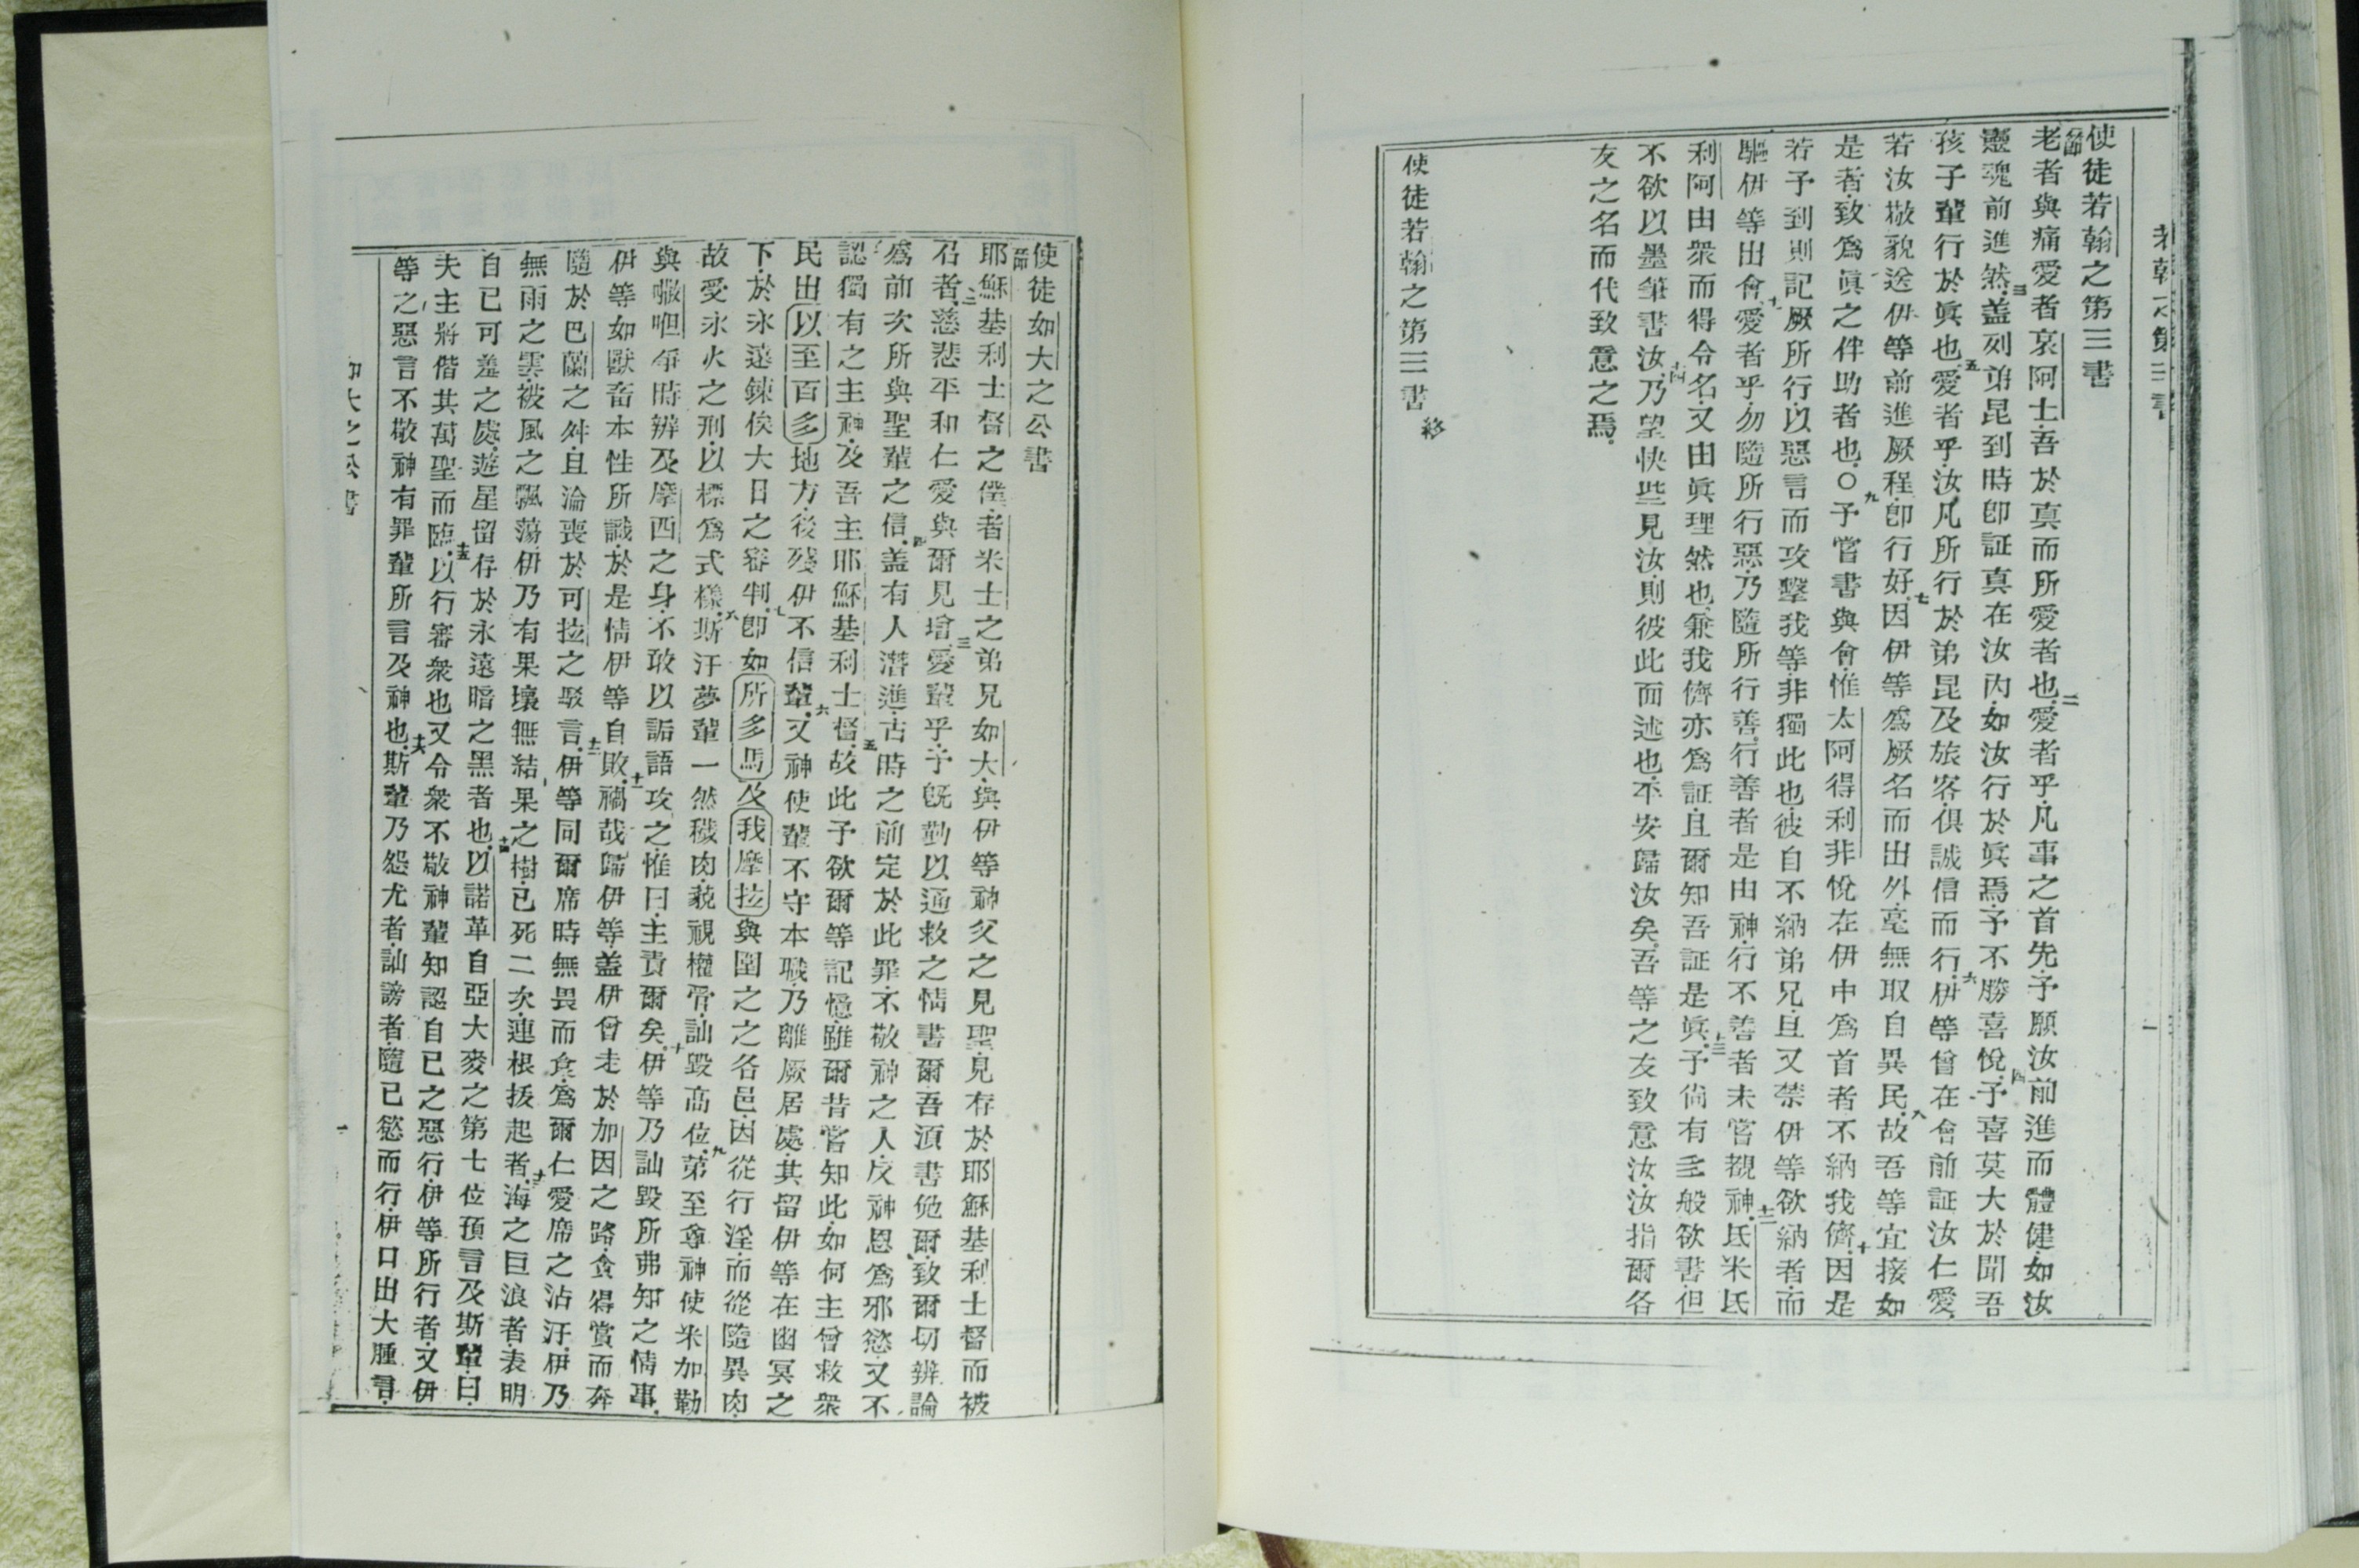 若翰之第三書
使徒若翰之第三書
老者與痛愛者哀阿士吾於真而所愛者也二愛者乎凡事之首先予願汝前進而體健如汝
靈魂前進然三盖列弟昆到時卽証真在汝內如汝行於眞焉予不勝喜悅四予喜莫大於聞吾
孩子輩行於眞也五愛者乎汝凡所行於弟昆及旅客俱誠信而行六伊等曾在會前証汝仁愛
若汝敬貌送伊等前進厥程卽行好七因伊等爲厥名而出外毫無取自異民八故吾等宜接如
是者致爲眞之伴助者也〇九予甞書與會惟太阿得利非悅在伊中爲首者不納我儕十因是
若予到則記厥所行以惡言而攻擊我等非獨此也彼自不納弟兄且又禁伊等欲納者而
驅伊等出會十一愛者乎勿隨所行惡乃隨所行善行善者是由神行不善者未甞覩神十二氐米氐
利阿由衆而得令名又由眞理然也兼我儕亦爲証且爾知吾証是眞十三予尙有多般欲書但
不欲以墨筆書汝十四乃望快些見汝則彼此面述也平安歸汝矣吾等之友致意汝汝指爾各
友之名而代致意之焉
使徒若翰之第三書 終
一
使徒如大之公書
耶穌基利士督之僕者米士之弟兄如大與伊等神父之見聖見存於耶穌基利士督而被
召者二慈悲平和仁愛與爾見增三愛輩乎予旣勤以通救之情書爾吾須書勉爾致爾切辨論
爲前次所與聖輩之信四盖有人潛進古時之前定於此罪不敬神之人反神恩爲邪慾又不
認獨有之主神及吾主耶穌基利士督五故此予欲爾等記憶雖爾昔甞知此如何主曾救衆
民出以至百多地方後殘伊不信輩六又神使輩不守本職乃離厥居處其留伊等在幽冥之
下於永遠鍊俟大日之審判七卽如所多馬及我摩拉與圍之之各邑因從行淫而從隨異肉
故受永火之刑以標爲式樣八斯汙夢輩一然穢肉藐視權骨訕毀高位九第至尊神使米加勒
與𠹌呾爭時辨及摩西之身不敢以詬語攻之惟曰主責爾矣十伊等乃訕毀所弗知之情事
伊等如獸畜本性所識於是情伊等自敗十一禍哉歸伊等盖伊曾走於加因之路貪得賞而奔
隨於巴蘭之舛且淪喪於可拉之駁言十二伊等同爾席時無畏而食爲爾仁愛席之沾汙伊乃
無雨之雲被風之飄蕩伊乃有果壞無結果之樹已死二次連根拔起者十三海之巨浪者表明
自已可羞之處遊星留存於永遠暗之黑者也十四以諾革自亞大麥之第七位預言及斯輩曰
夫主將偕其萬聖而臨十五以行審衆也又令衆不敬神輩知認自已之惡行伊等所行者又伊
等之惡言不敬神有罪輩所言及神也十六斯輩乃怨尤者訕謗者隨已慾而行伊口出大腫言
如大之公書
一